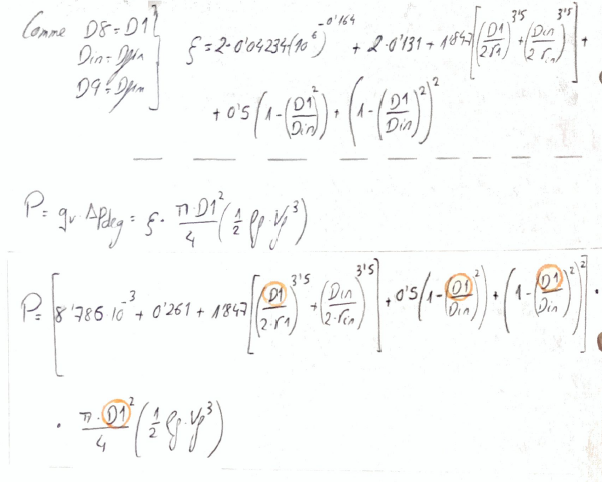 Comme D8 = D1
Din = Dpin
D9 = Dpin
ξ = 2·0'04234(10^6)^-0'164 + 2·0'131 + 1'847[(D1/2r1)^3'5 + (Din/2rin)^3'5] +
+ 0'5(1-(D1/Din)^2) + (1-(D1/Din)^2)^2
P = qv·ΔPdeg = ξ · π·D1^2/4 (1/2 ρg·Vg^3)
P = [8'786·10^-3 + 0'261 + 1'847[(D1/2·r1)^3'5 + (Din/2·rin)^3'5] + 0'5(1-(D1/Din)^2) + (1-(D1/Din)^2)^2] ·
· π·D1^2/4 (1/2 ρg·Vg^3)